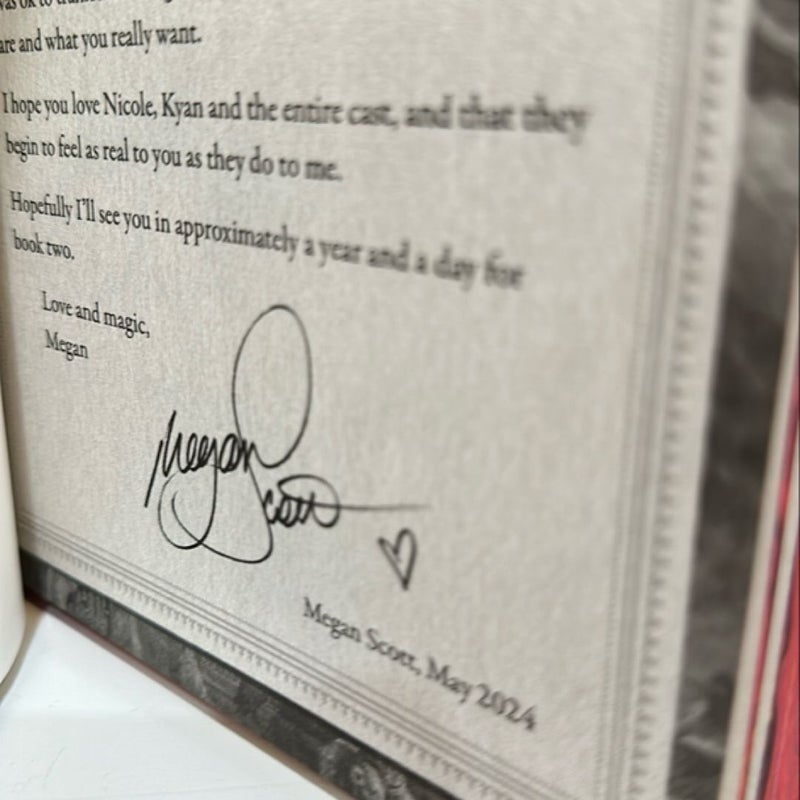 was ok to
are and what you really want.
I hope you love Nicole, Kyan and the entire cast, and that they
begin to feel as real to you as they do to me.
Hopefully I'll see you in approximately a year and a day for
book two.
Love and magic,
Megan
Megan
Scott
Megan Scott, May 2024